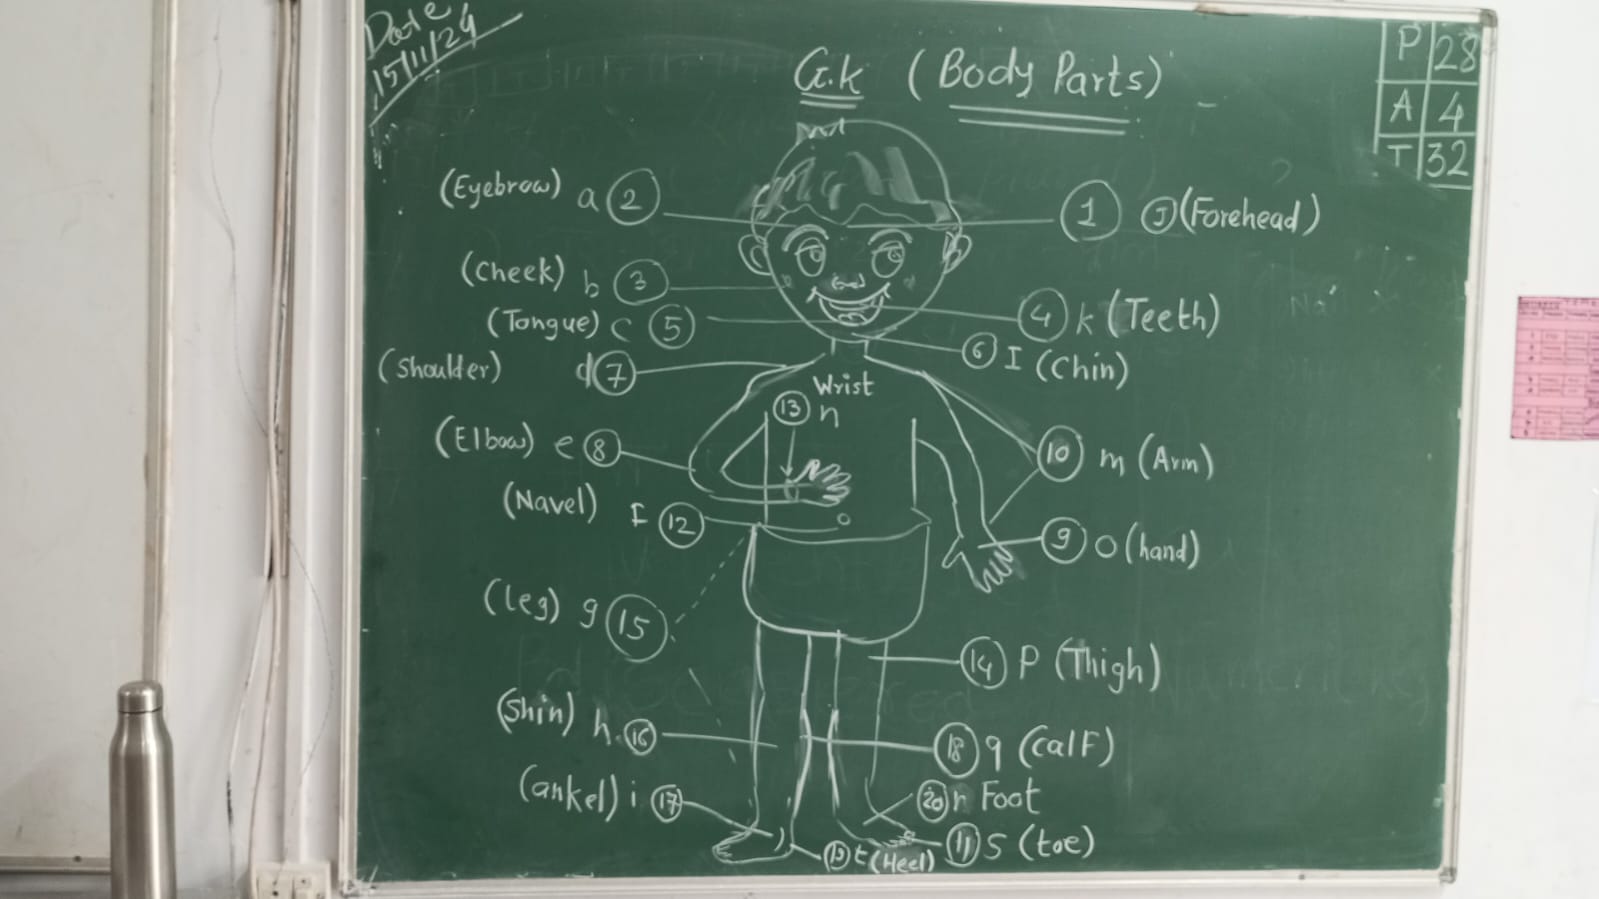 Date
15/11/24
P 28
A 4
T 32
G.K (Body Parts)
(Eyebrow) a 2
1 J (Forehead)
(Cheek) b 3
(Tongue) c 5
4 k (Teeth)
6 I (Chin)
(Shoulder) d 7
Wrist
13 n
(Elbow) e 8
10 m (Arm)
(Navel) f 12
9 o (hand)
(leg) g 15
14 P (Thigh)
(Shin) h. 16
18 q (CalF)
(ankel) i 17
20 r Foot
11 S (toe)
19 t (Heel)